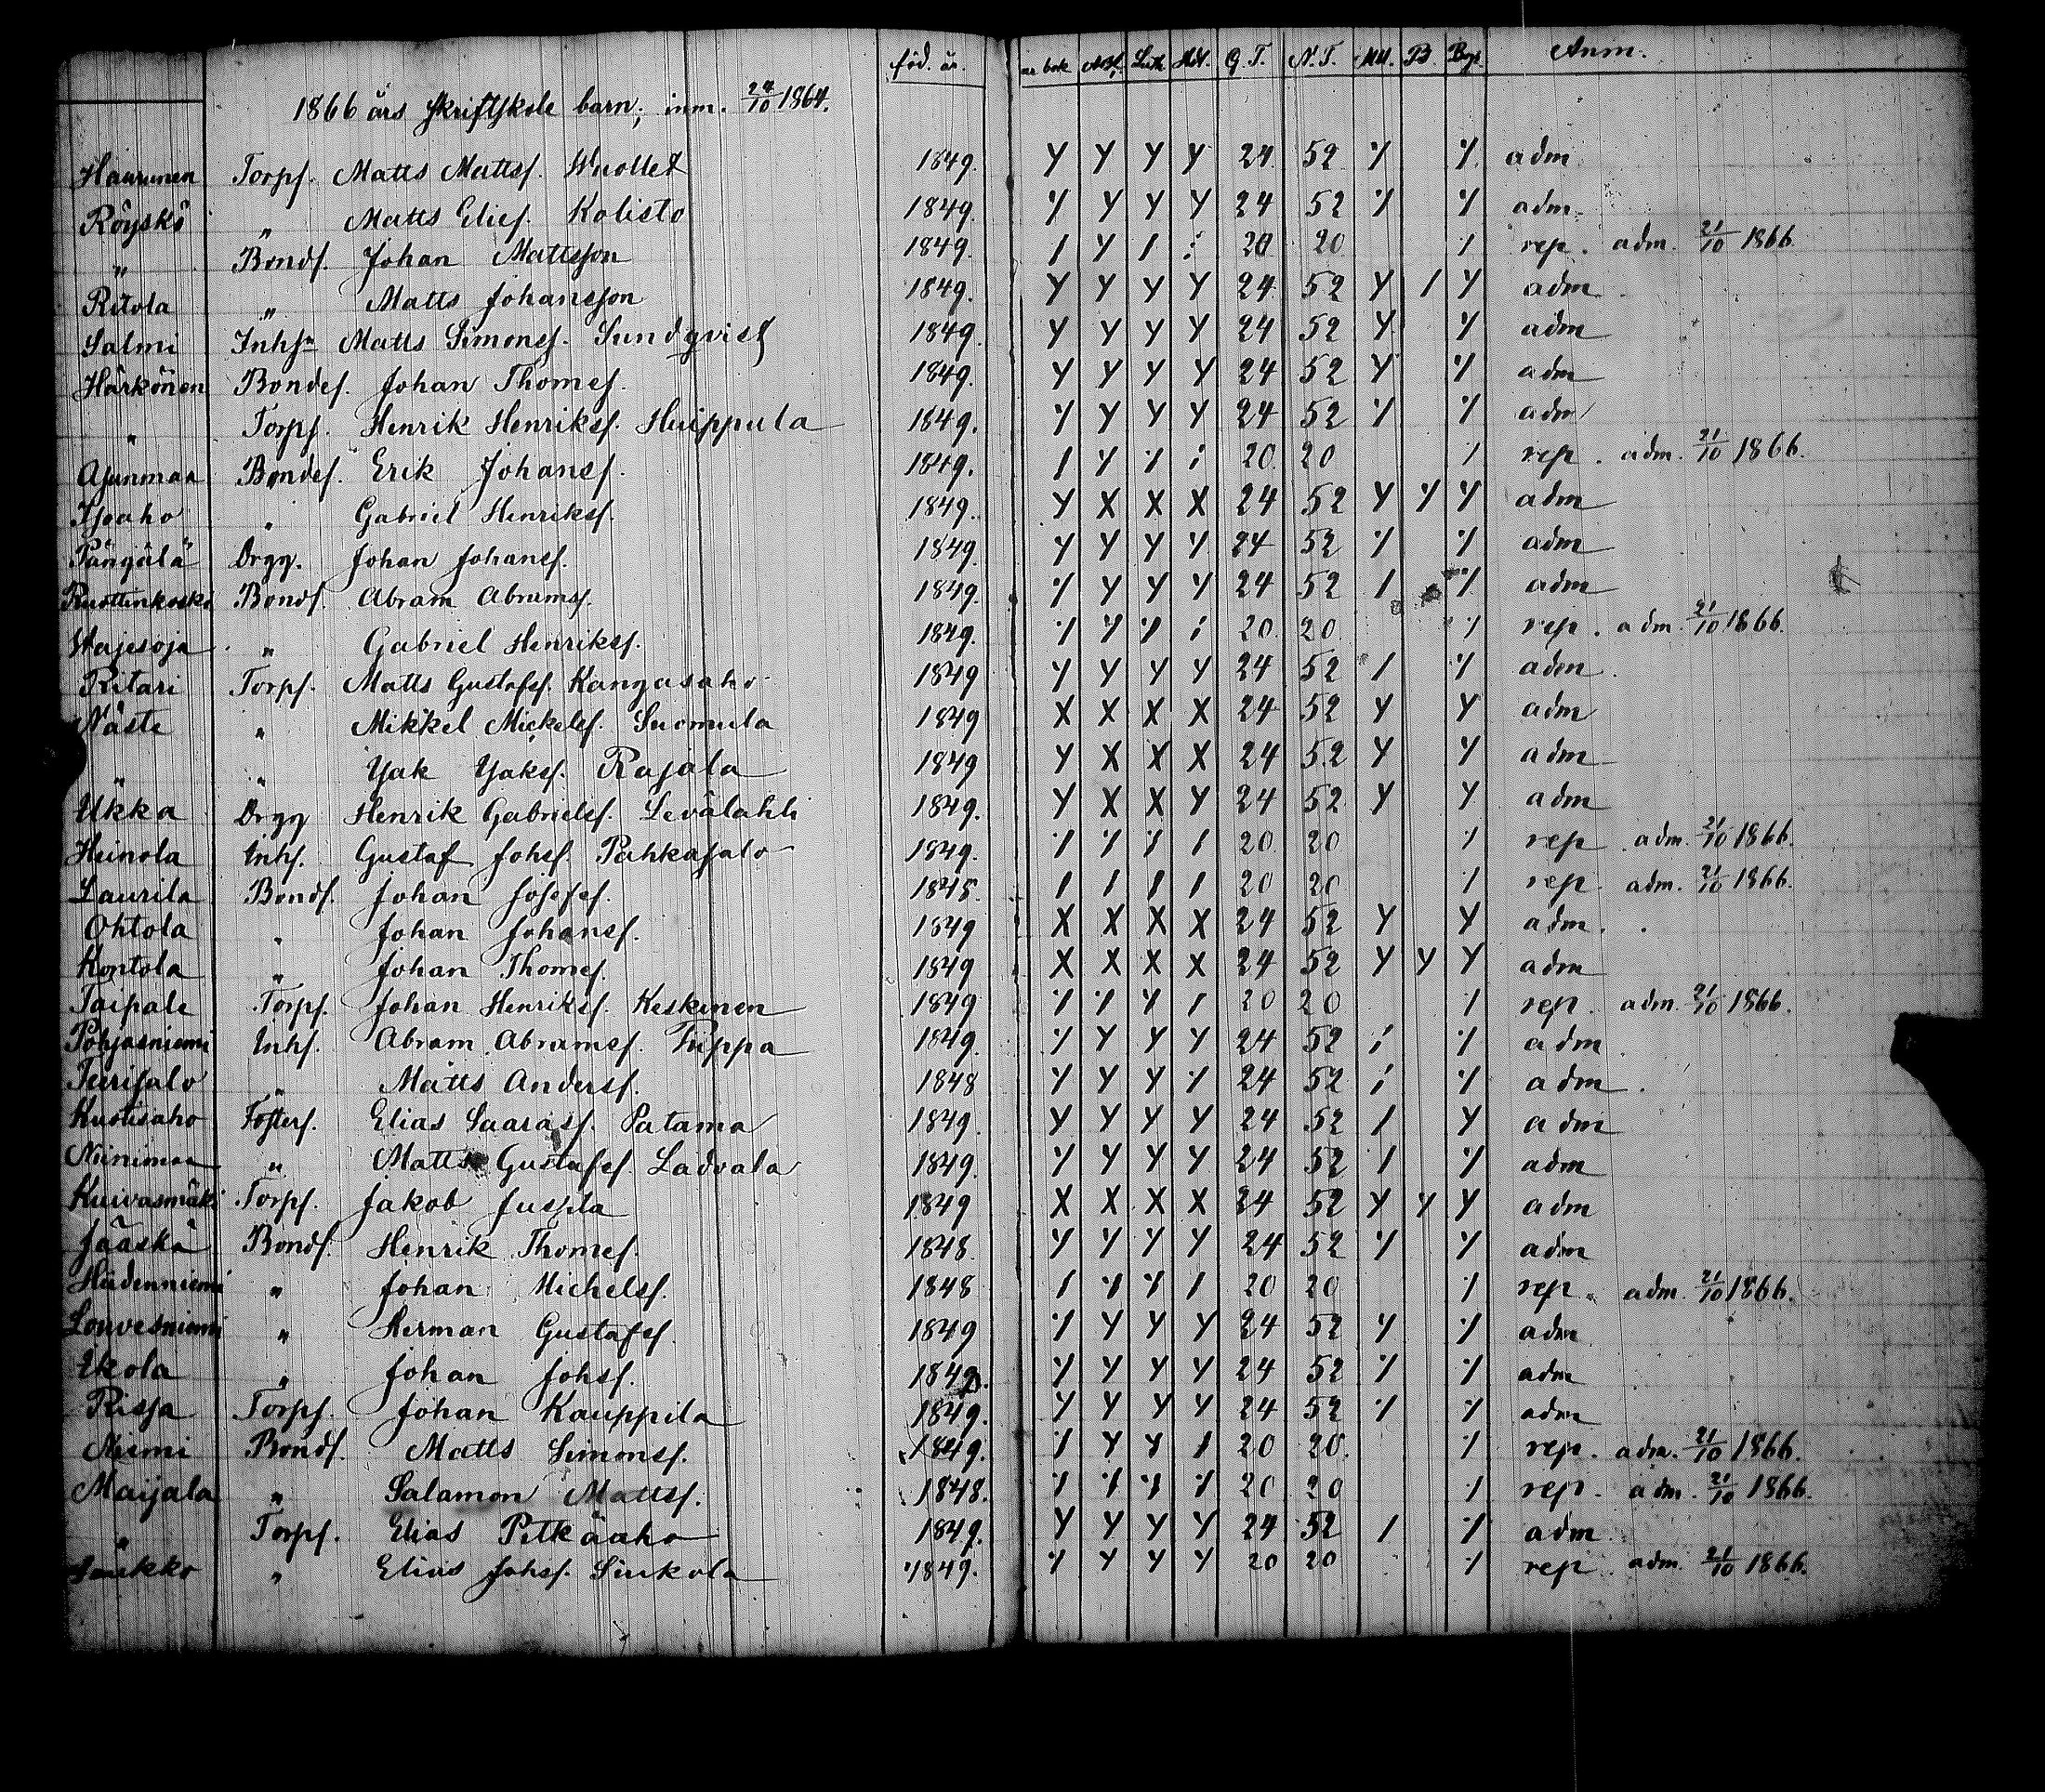 föd. år. ur bok ABf. Luth. Hdl. G. T. N. T. Mll. B. Begr. Anm.
1866 års skriftskole barn; inm. 24/10 1864.
Haurunen Torps. Matts Mattss. Wuollet 1849. Y Y Y Y 24 52 ٪ ٪ adm
Röyskö " Matts Elies. Kolisto 1849. ٪ Y Y Y 24 52 ٪ ٪ adm.
" Bonds. Johan Mattsson 1849. / Y / i 20 20 / rep. adm. 21/10 1866.
Ritola " Matts Johansson 1849. Y Y Y Y 24 52 Y / Y adm
Salmi Inhsn Matts Simonss. Sundqvist 1849. Y Y Y Y 24 52 Y ٪ adm
Härkönen Bondes. Johan Thomes. 1849. Y Y Y Y 24 52 Y ٪ adm
" Torps. Henrik Henrikss. Huippula 1849. ٪ Y Y Y 24 52 ٪ ٪ adm
Ajunmaa Bondes. Erik Johanss. 1849. / Y ٪ i 20. 20 / rep. adm. 21/10 1866.
Isoaho " Gabriel Henrikss. 1849. Y X X X 24 52 Y Y Y adm
Pängälä Drgg. Johan Johanss. 1849. Y Y Y Y 24 52 ٪ ٪ adm
Ruottenkoski Bonds. Abram Abramss. 1849. ٪ Y Y Y 24 52 / ٪ adm
Wajesoja " Gabriel Henrikss. 1849. ٪ ٪ ٪ i 20. 20 ٪ rep. adm. 21/10 1866.
Ritari Torps. Matts Gustafss. Kangasaho 1849 Y Y Y Y 24 52 / ٪ adm.
Näste " Mikkel Mickelss. Suomula 1849 X X X X 24 52 Y Y adm
" " Yak Yakss. Rajala 1849 Y X X X 24 52 Y Y adm
Ukka Drgg Henrik Gabrielss. Levälahti 1849. Y X X Y 24 52 Y Y adm
Heinola Inhs. Gustaf Johss. Pahkasalo 1849. ٪ ٪ ٪ / 20 20 ٪ rep. adm. 21/10 1866.
Laurila Bonds. Johan Josefss. 1848. / / / / 20 20 / rep. adm. 21/10 1866.
Ohtola " Johan Johanss. 1849 X X X X 24 52 Y Y adm.
Kontola " Johan Thomes. 1849 X X X X 24 52 Y Y Y adm
Taipale Torps. Johan Henrikss. Keskinen 1849 ٪ ٪ Y / 20 20 / rep. adm. 21/10 1866.
Pohjasniemi Inhs. Abram Abramss. Piippa 1849. ٪ Y Y Y 24 52 i ٪ adm
" Matts Anderss. 1848 Y Y Y ٪ 24 52 i ٪ adm.
Kuotisaho Fosters. Elias Saarass. Patama 1849. Y Y Y Y 24 52 / Y adm
Niinimaa " Matts Gustafss. Ladvala 1849. Y Y Y Y 24 52 / ٪ adm
Kuivasmäki Torps. Jakob Juspila 1849 X X X X 24 52 Y Y Y adm
Jääskä Bonds. Henrik Thomes. 1848. Y Y Y Y 24 52 ٪ ٪ adm
Hiidenniemi " Johan Michelss. 1848 / ٪ ٪ / 20 20 ٪ rep. adm. 21/10 1866.
Louvesniemi " Herman Gustafss. 1849 ٪ Y Y Y 24 52 Y ٪ adm
Ekola " Johan Johss. 1849. ٪ Y Y Y 24 52 ٪ ٪ adm
Rissa Torps. Johan Kauppila 1849. Y Y Y Y 24 52 ٪ ٪ adm
Niemi Bonds. Matts Simonss. 1849. ٪ Y Y / 20 20. ٪ rep. adm. 21/10 1866.
Maijala " Salamon Mattss. 1848. ٪ ٪ ٪ ٪ 20 20 / rep. adm. 21/10 1866.
" Torps. Elias Pitkäaho 1849. Y Y Y Y 24 52 / ٪ adm
" Elias Johss. Sinkola 1849. ٪ Y Y Y 20 20 ٪ rep. adm. 21/10 1866.